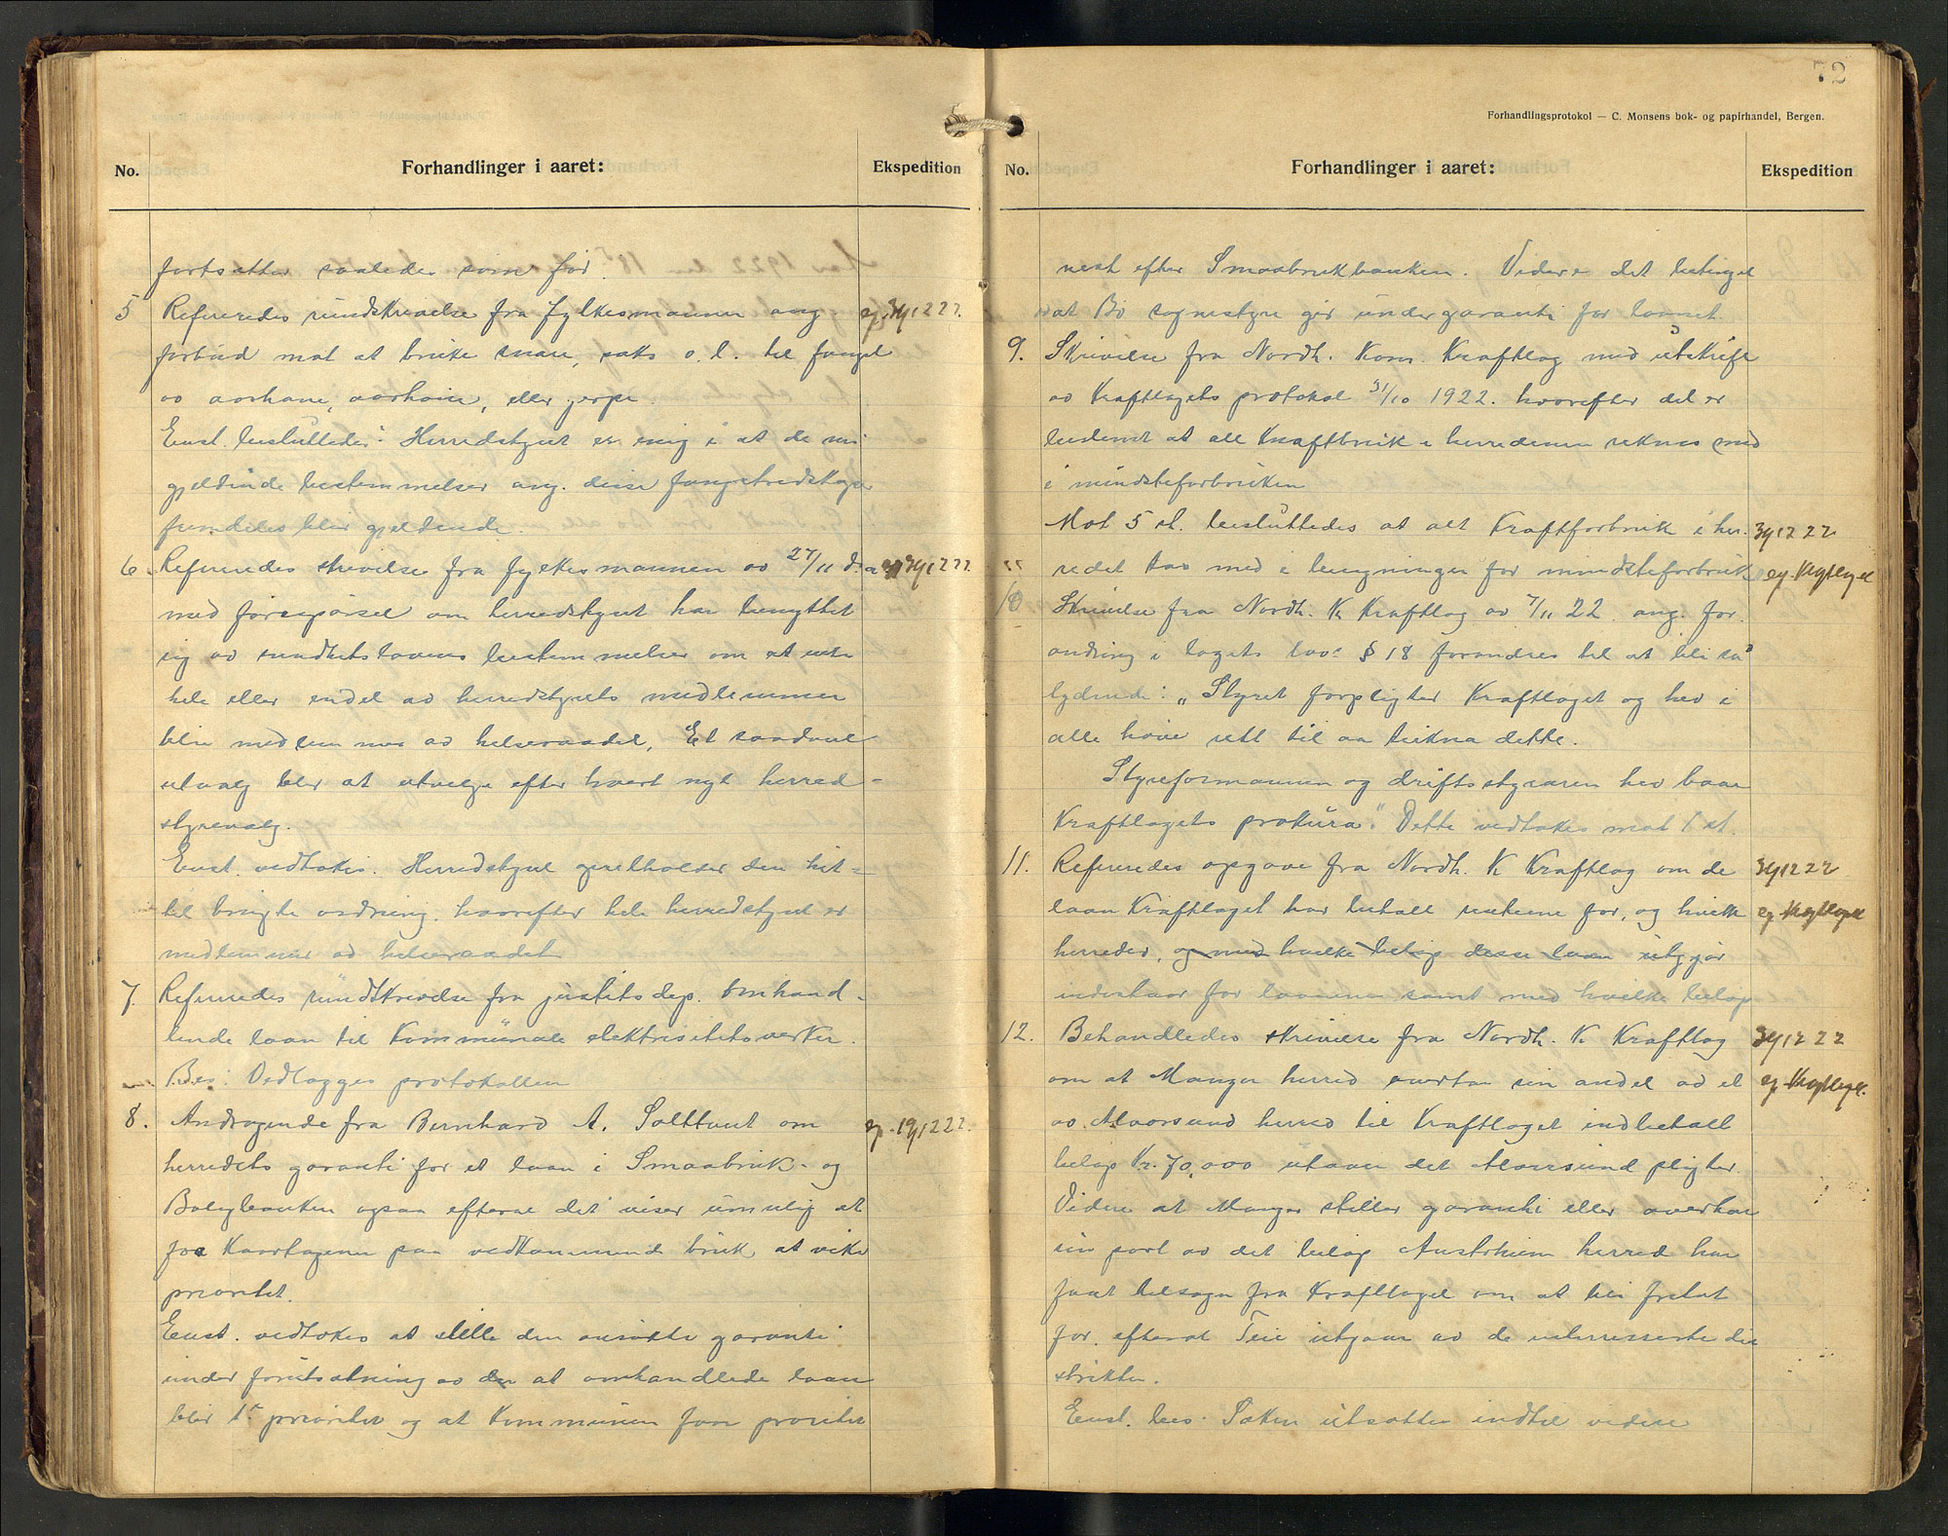 No.
Forhandlinger i aaret:
Ekspedition
fortsætter saaledes som før.
5 Refereredes rundskrivelse fra fylkesmannen ang. ep. 3/12 22.
forbud mot at bruke snare, saks o. l. til fangst
av aarhane, aarhøne, eller jerpe.
Enst. besluttedes: Herredstyret er enig i at de nu
gjældende bestemmelser ang. disse fangstredskaper
fremdeles blir gjeldende.
6. Refereredes skrivelse fra fylkesmannen av 27/11 d. a. ep 3/12 22.
med forespørsel om herredstyret har benyttet
sig av sundhetslovens bestemmelser om at
hele eller endel av herredstyrets medlemmer
blir medlemmer av helseraadet. Et saadant
utvalg blir at utvelge efter hvert nyt herred-
styrevalg.
Enst. vedtokes. Herredstyret opretholder den hit-
til brugte ordning, hvorefter hele herredstyret er
medlemmer av helseraadet
7. Refereredes rundskrivelse fra justitsdep. omhand-
lende laan til kommunale elektrisitetsverker.
Bes: Vedlægges protokollen
8. Andragende fra Bernhard A. Solttveit om ep. 19/12 22.
herredets garanti for et laan i Smaabruk- og
Boligbanken ogsaa efterat det viser umulig at
faa Kaartageren paa vedkommende bruk at vike
prioritet.
Enst. vedtokes at stille den ansøkte garanti
under forutsætning av at omhandlede laan
blir 1ste prioritet og at kommunen faar prioritet
72
Forhandlingsprotokol — C. Monsens bok- og papirhandel, Bergen.
No.
Forhandlinger i aaret:
Ekspedition
nest efter Smaabrukbanken. Videre det betinget
at Bø sognestyre gir undergaranti for laanet.
9. Skrivelse fra Nordh. Kom. Kraftlag med utskrift
av Kraftlagets protokol 31/10 1922. hvorefter det er
bestemt at alt kraftbruk i herrederne reknes med
i mindsteforbruken
Mot 5 st. besluttedes at alt Kraftforbruk i her- 3/12 22
redet tas med i beregningen for mindsteforbruk ep. Kraftlaget
10 Skrivelse fra Nordh. K Kraftlag av 7/11 22 ang. for-
andring i lagets lov: § 18 forandres til at bli saa
lydende: „Styret forpligter Kraftlaget og hev i
alle høve rett til aa teikna dette.
Styreformannen og driftsstyraren hev baae
Kraftlagets prokura." Dette vedtokes mot 1 st.
11. Refereredes opgave fra Nordh. K Kraftlag om de 3/12 22
laan Kraftlaget har betalt renterne for, og hvilke ep. Kraftlaget
herreder, og med hvilke beløp disse laan utgjør
indestaar for laanene samt med hvilke beløp
12. Behandledes skrivelse fra Nordh. K Kraftlag 3/12 22
om at Manger herred overtar sin andel av et ep. Kraftlaget.
av Alversund herred til Kraftlaget indbetalt
beløp Kr. 70,000 utover det Alversund pligter.
Videre at Manger stiller garanti eller overtar
sin part av det beløp Austrheim herred har
faat tilsagn fra Kraftlaget om at bli fritat
for. efterat utgaar av de interesserte di-
strikter.
Enst. bes. Saken utsættes indtil videre